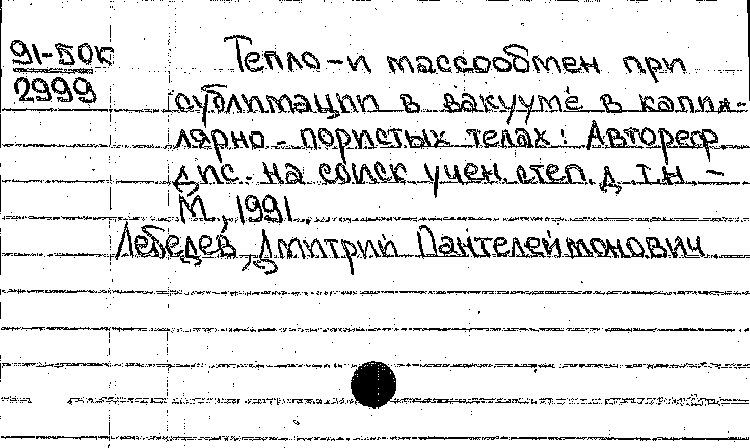 91-50к
2999
Тепло-и массообмен при
сублимации в вакууме в капил-
лярно-пористых телах: Автореф.
дис. на соиск учен. степ. д. т.н. -
М., 1991.
Лебедев, Дмитрий Пантелеймонович.